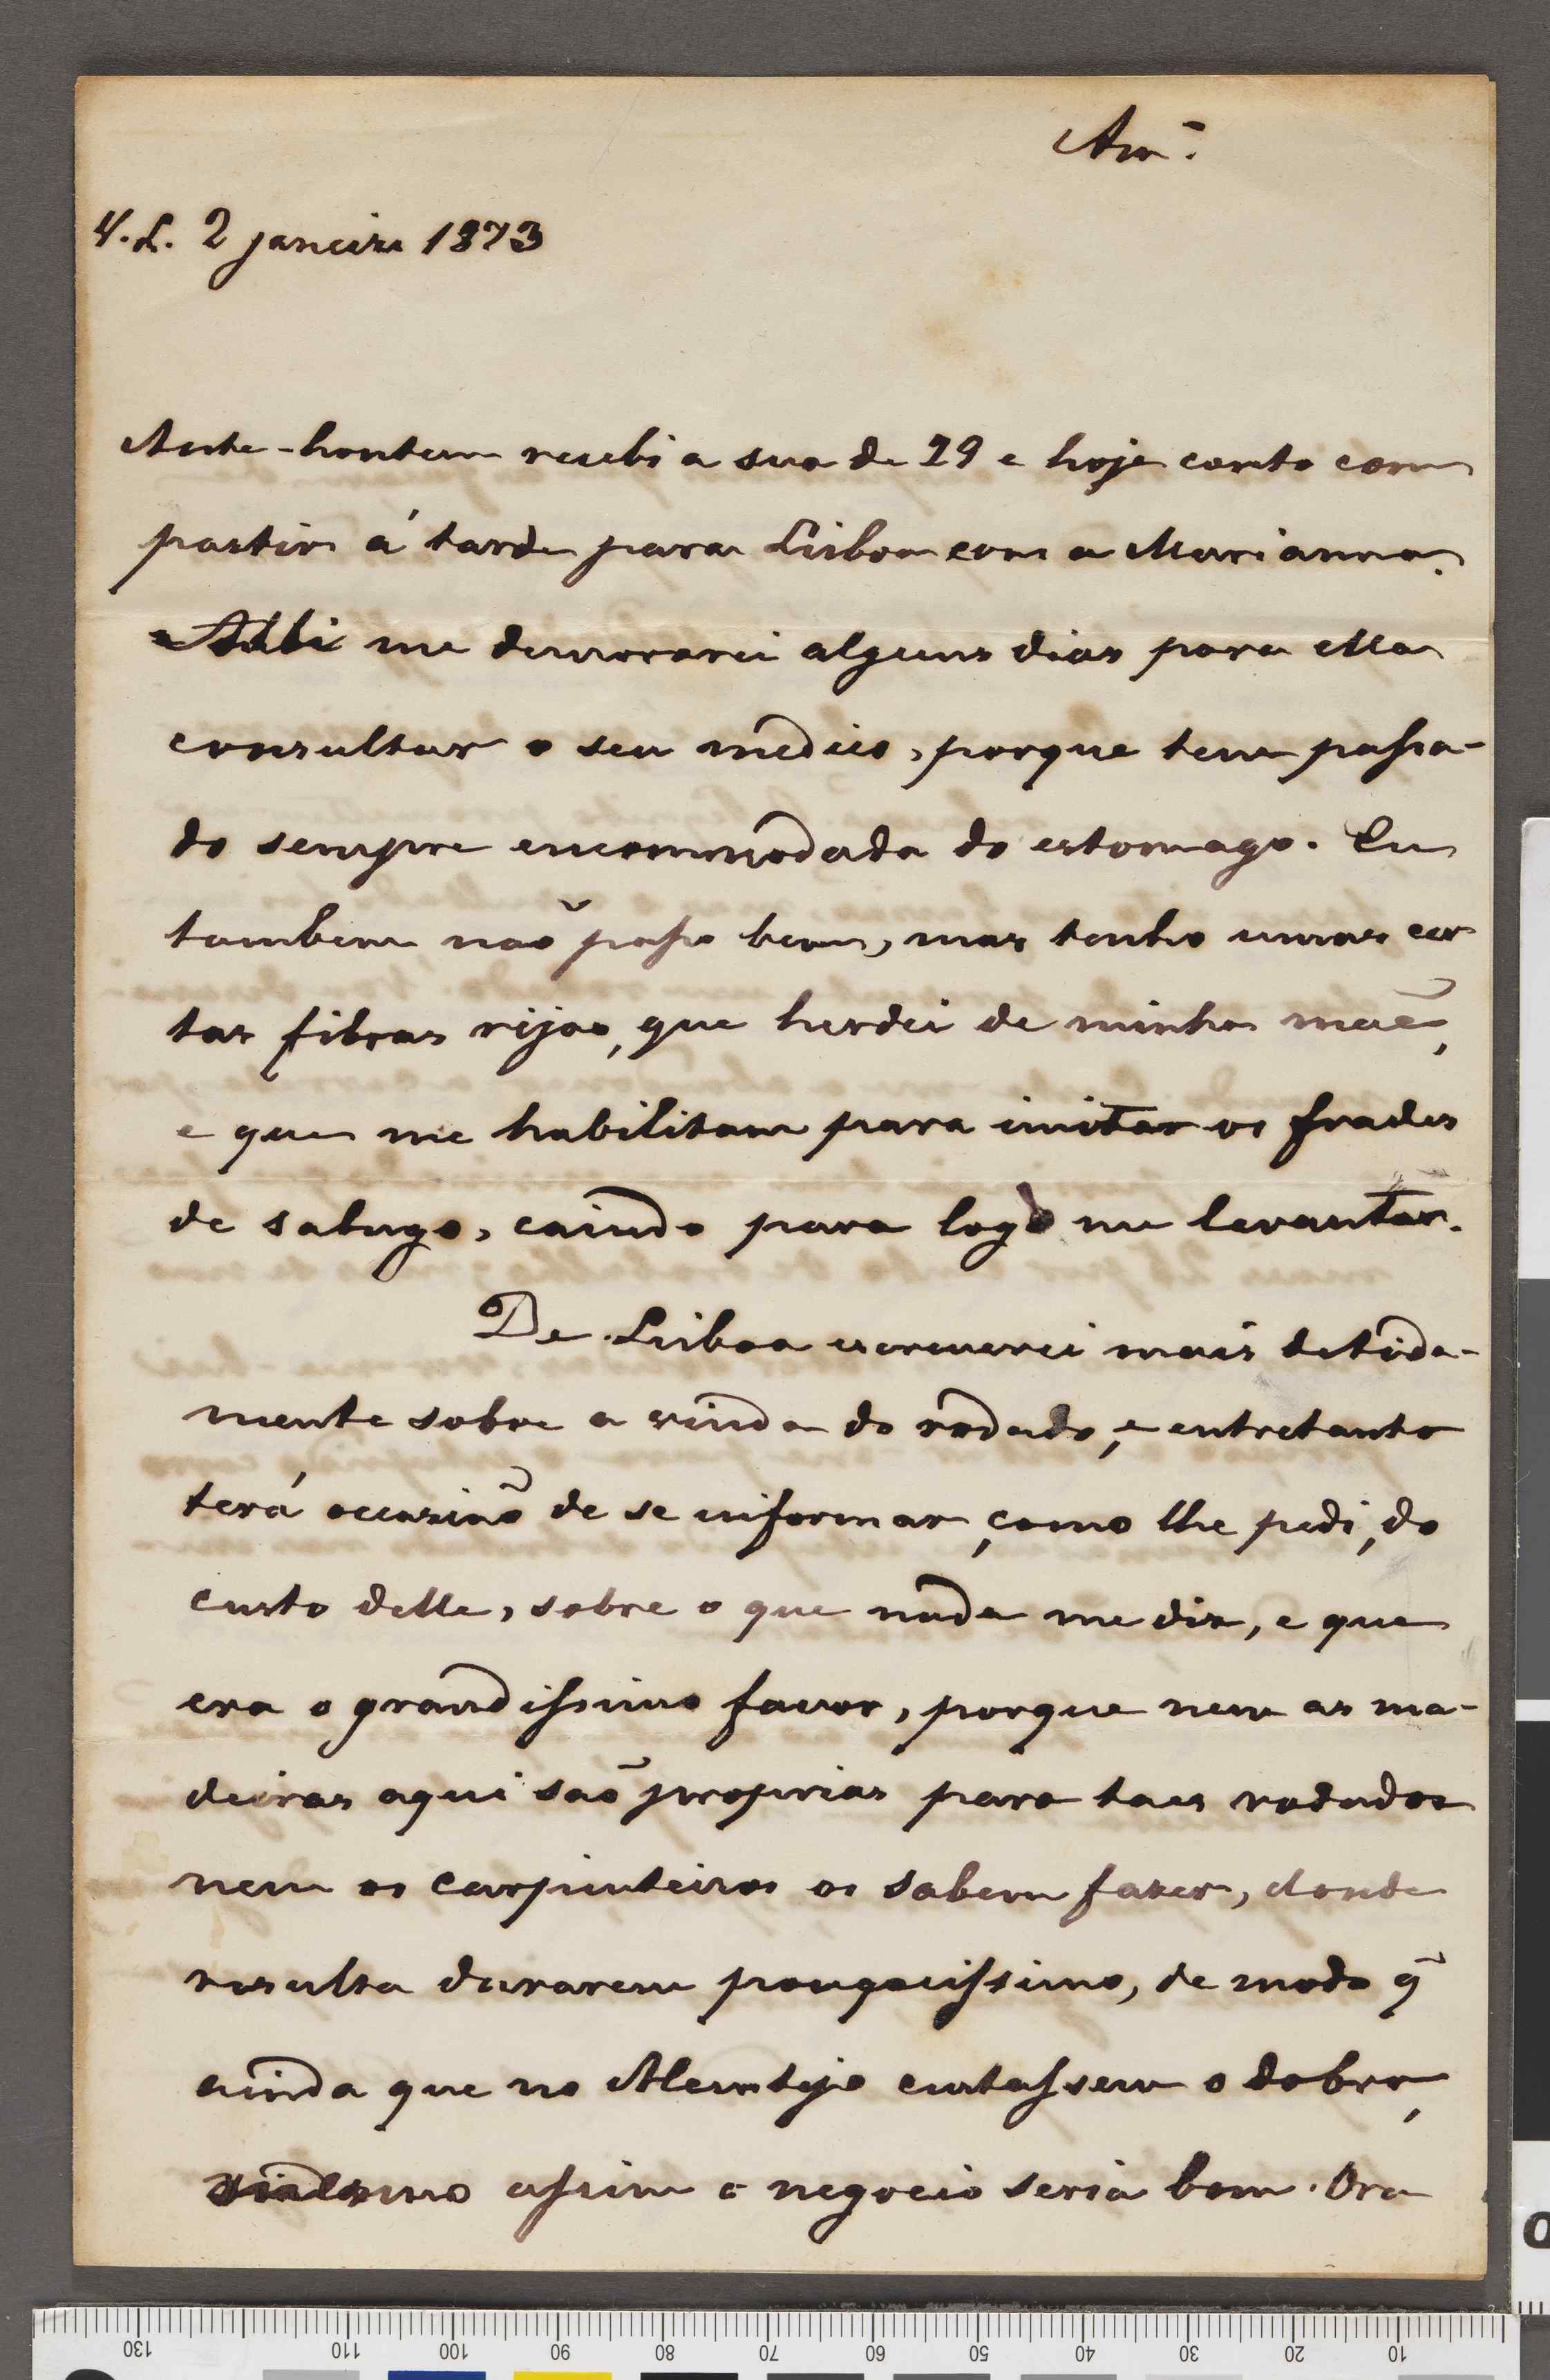 Amº.
V. L. 2 janeiro 1873
Ante-hontem recebi a sua de 29 e hoje conto com
partir á tarde para Lisboa com a Marianna.
Alli me demorarei alguns dias para ella
consultar o seu medico, porque tem passa-
do sempre encommodada do estomago. Eu
tambem não passo bem, mas tenho umas cer
tas fibras rijas, que herdei de minha mãe,
e que me habilitam para imitar os frades
de sabugo, caindo para logo me levantar.
De Lisboa escreverei mais detida-
mente sobre a vinda do rodado, e entretanto
terá occasião de se informar, como lhe pedi, do
custo delle, sobre o que nada me diz, e que
era o grandissimo favor, porque nem as ma-
deiras aqui são proprias para taes rodados
nem os carpinteiros os sabem fazer, donde
resulta durarem pouquissimo, de modo q̃
ainda que no Alemtejo custassem o dobro,
assim o negocio seria bom. Ora
130
110
100
90
80
70
60
50
40
30
20
10